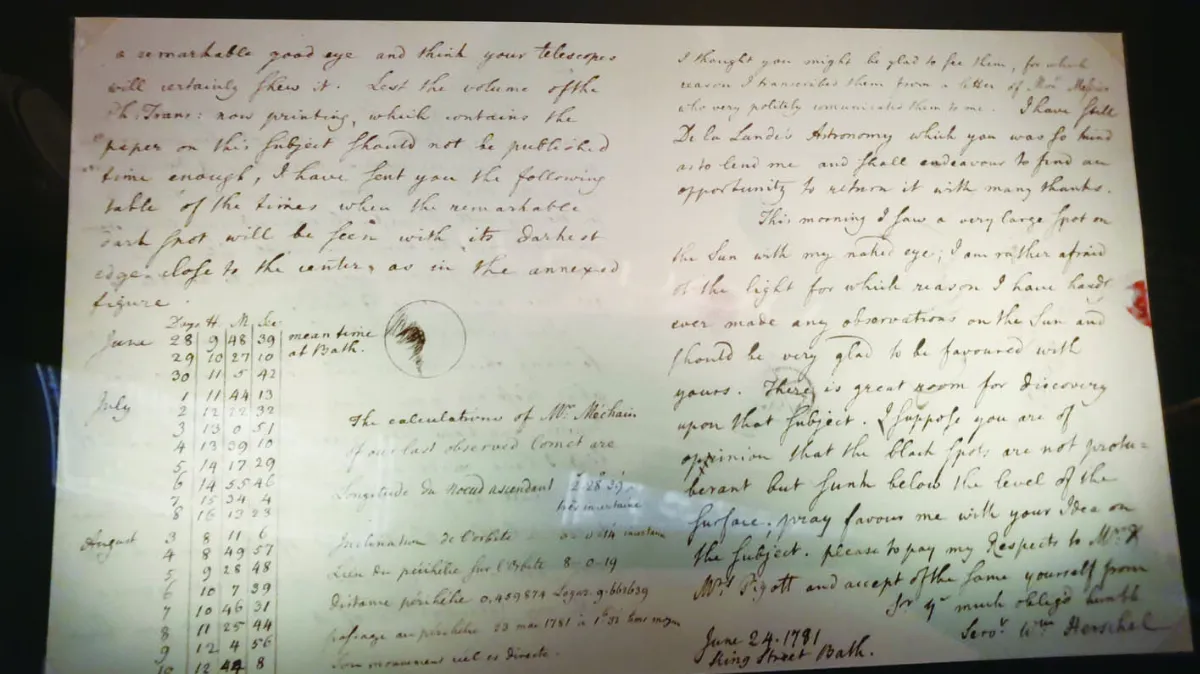 a remarkable good eye and think your telescopes
will certainly shew it. Lest the volume of the
Ph: Trans: now printing, which contains the
paper on this subject should not be published
time enough, I have sent you the following
table of the times when the remarkable
dark spot will be seen with its darkest
edge close to the center, as in the annexed
figure.
Days H. M. Sec:
June 28 9 48 39 mean time
29 10 27 10 at Bath.
30 11 5 42
July 1 11 44 13
2 12 22 32
3 13 0 51
4 13 39 10
5 14 17 29
6 14 55 46
7 15 34 4
8 16 13 23
August 3 8 11 6
4 8 49 57
5 9 28 48
6 10 7 39
7 10 46 31
8 11 25 44
9 12 4 56
10 12 44 8
The calculations of Mr. Mechain
of our last observed Comet are
Longitude du noeud ascendant 2 28 39
très incertaine
Inclination de l'orbite
Lieu du périhélie sur l'Orbite 8-0-19
distance périhélie 0,459874 Logar 9.661639
passage au périhélie 23 mai 1781 à
Son mouvement est directe.
I thought you might be glad to see them, for which
reason I transcribed them from a letter of Mr. Messier
who very politely comunicated them to me. I have still
De la Lande's Astronomy which you was so kind
as to lend me and shall endeavour to find an
opportunity to return it with many thanks.
This morning I saw a very large spot on
the Sun with my naked eye; I am rather afraid
of the light for which reason I have hardly
ever made any observations on the Sun and
should be very glad to be favoured with
yours. There is great room for discovery
upon that subject. I suppose you are of
opinion that the black spots are not protu=
berant but sunk below the level of the
surface; pray favour me with your Idea on
the subject. please to pay my Respects to Mr. &
Mrs. Pigott and accept of the same yourself from
Sr. yr. much oblig'd humb
Servt. Wm. Herschel
June 24. 1781
King Street Bath.